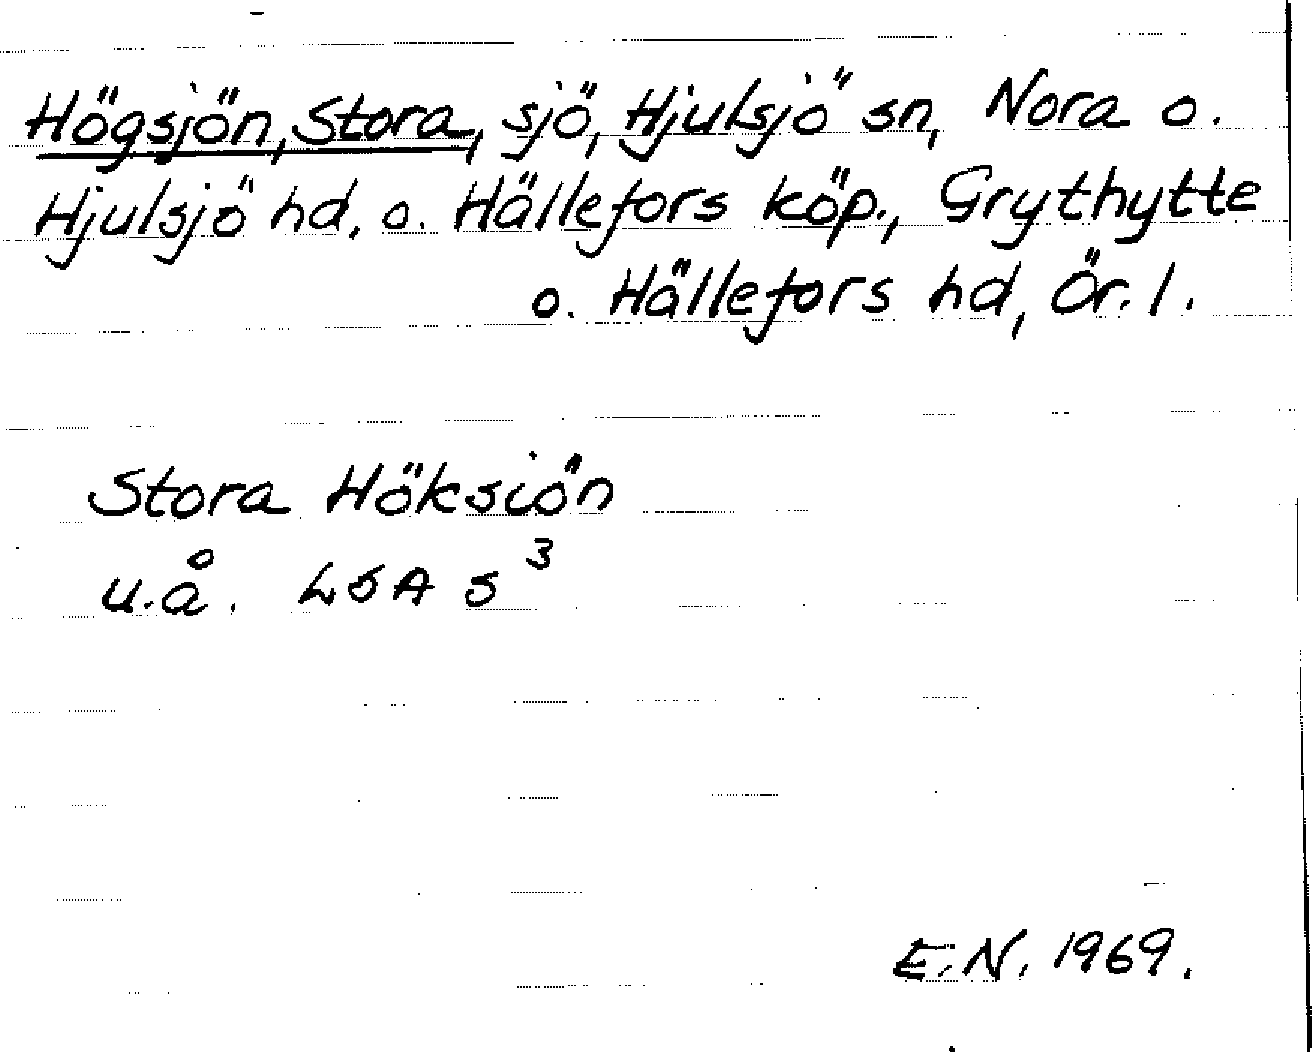 Högsjön, Stora, sjö, Hjulsjö sn, Nora o.
Hjulsjö hd. o. Hällefors köp., Grythytte
o. Hällefors hd, Ör. l.
Stora Höksiön
u.å. LSA S³
E.N. 1969.